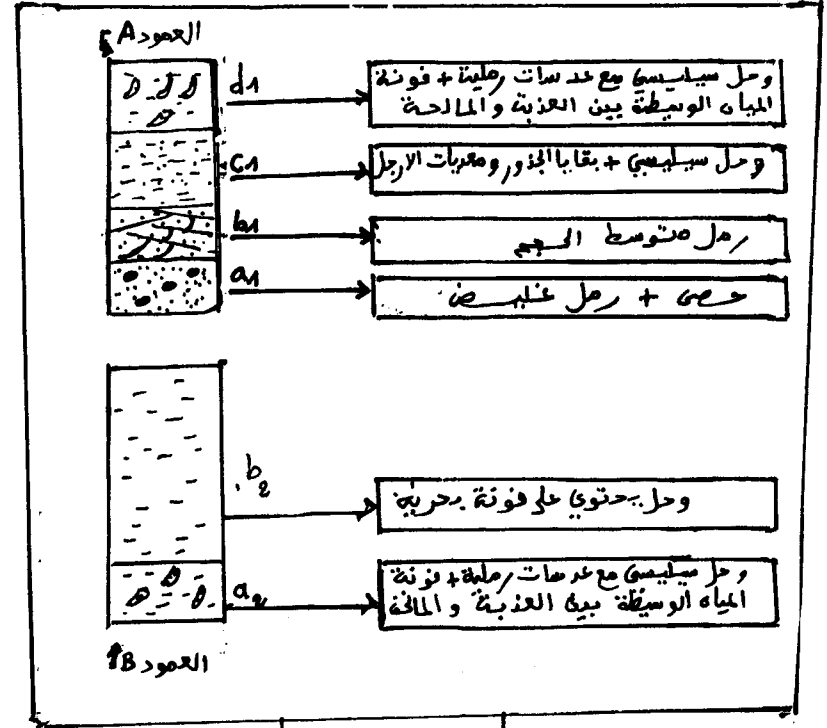 العمود A
d1
وحل سيليسي مع عدسات رملية + فونة
المياه الوسيطة بين العذبة والمالحة
c1
وحل سيليسي + بقايا الجذور ومعديات الارجل
b1
رمل متوسط الحجم
a1
حصى + رمل غليض
b2
وحل يحتوي على فونة بحرية
a2
وحل سيليسي مع عدسات رملية + فونة
المياه الوسيطة بين العذبة والمالحة
العمود B